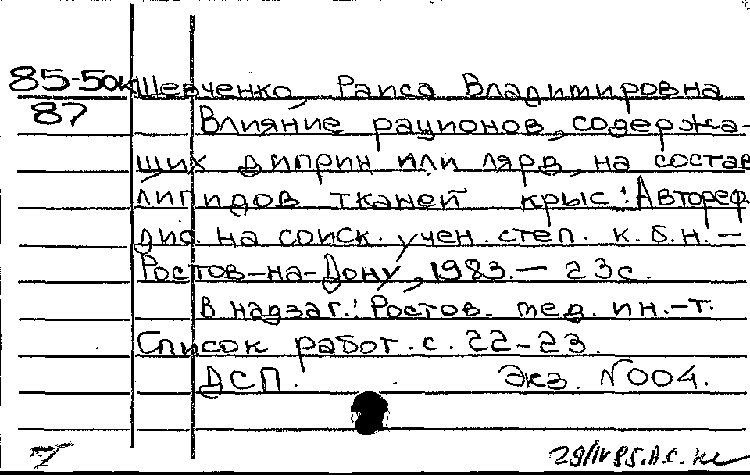 85-50к Шевченко, Раиса Владимировна
87 Влияние рационов, содержа-
щих диприн или лярд, на состав
липидов тканей крыс: Автореф.
дис. на соиск. учен. степ. к. б. н. —
Ростов-на-Дону, 1983. — 23 с.
В надзаг.: Ростов. мед. ин.-т.
Список работ. с. 22-23.
ДСП. Экз. №004.
29/IV 85. А.С.